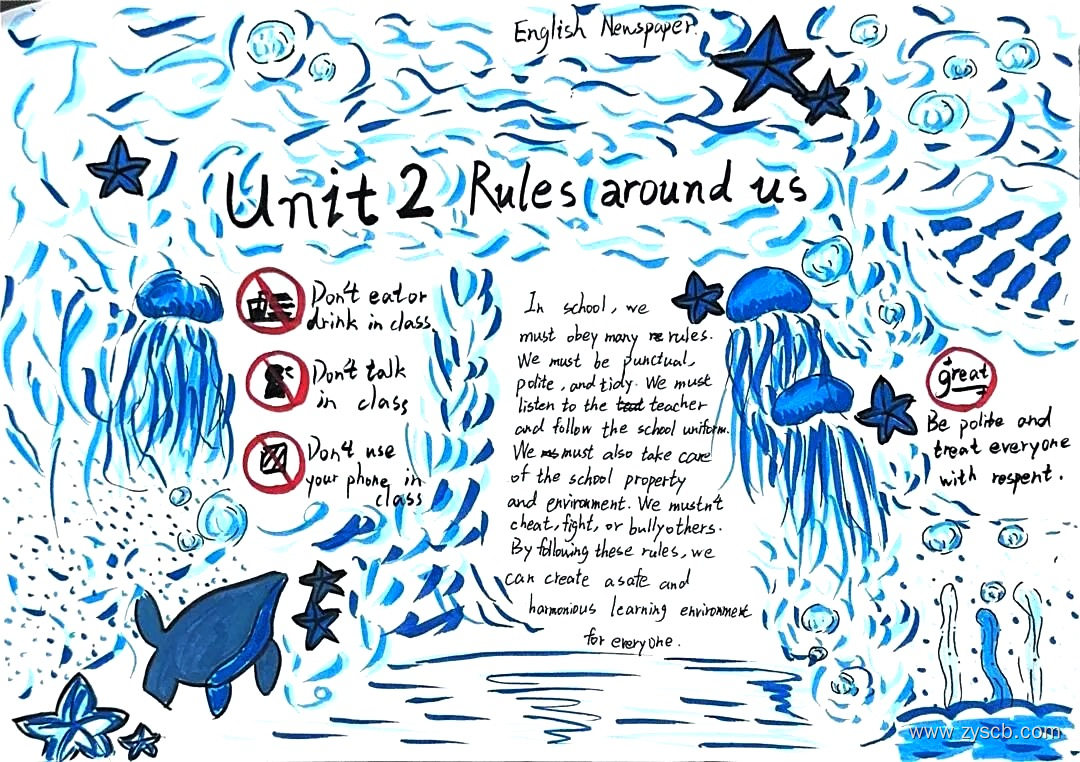 English Newspaper.
Unit 2 Rules around us
Don't eat or
drink in class.
Don't talk
in class
Don't use
your phone in
class
In school, we
must obey many rules.
We must be punctual,
polite, and tidy. We must
listen to the teacher
and follow the school uniform.
We must also take care
of the school property
and environment. We mustn't
cheat, fight, or bully others.
By following these rules, we
can create a safe and
harmonious learning environment
for everyone.
great
Be polite and
treat everyone
with respent.
www.zyscb.com